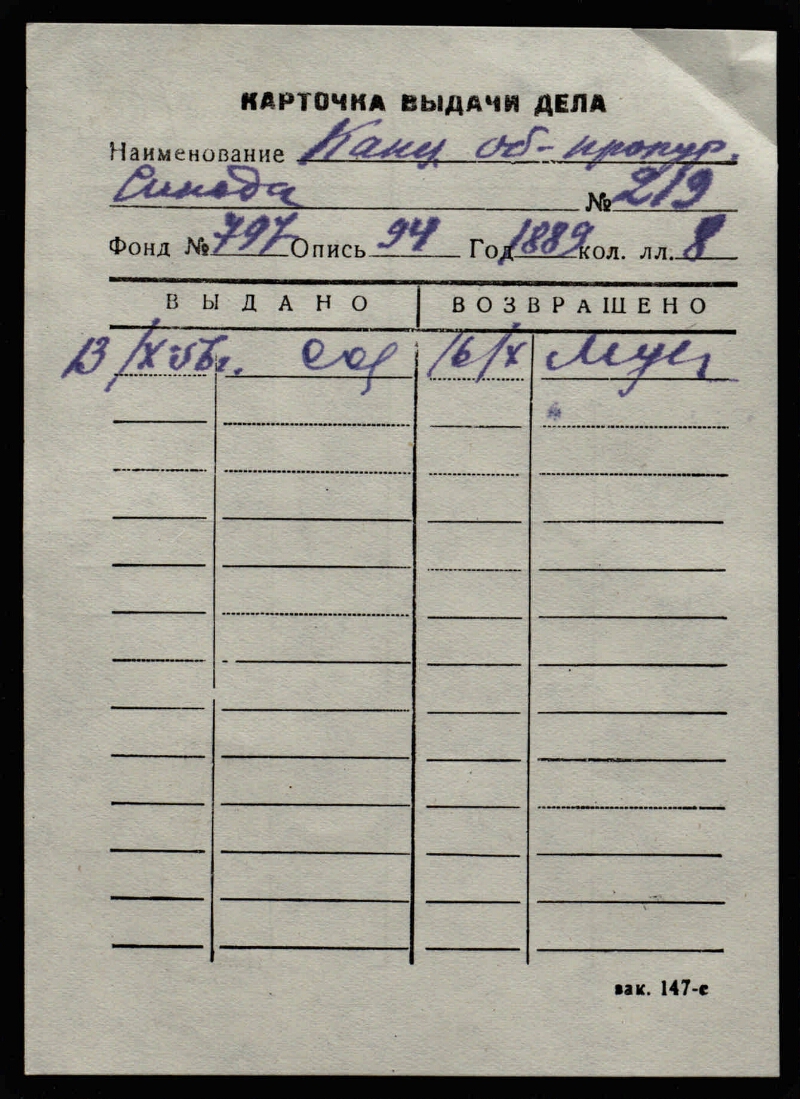 КАРТОЧКА ВЫДАЧИ ДЕЛА
Наименование Канц об-прокур.
Синода № 219
Фонд № 797 Опись 94 Год 1889 кол. лл. 8
ВЫДАНО ВОЗВРАШЕНО
13/X-56г. 16/X
зак. 147-с